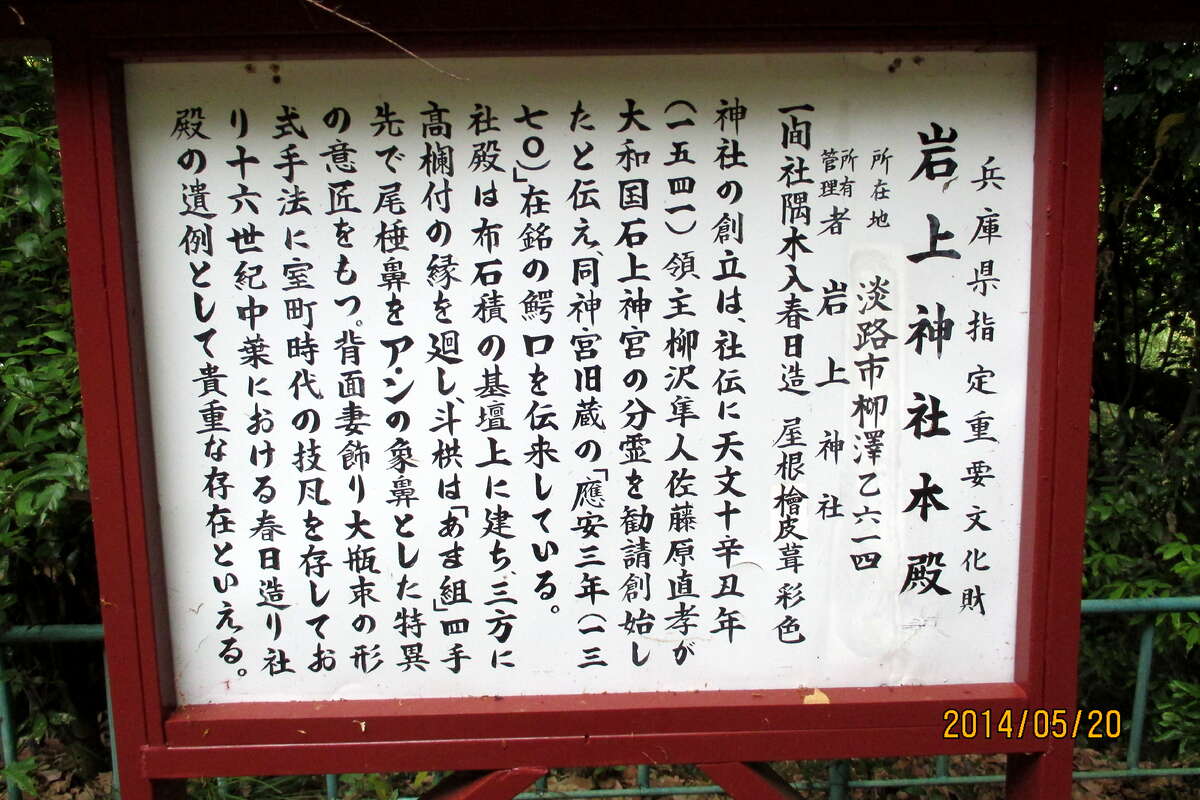 兵庫県指定重要文化財
岩上神社本殿
所在地 淡路市柳澤乙六一四
所有
管理者 岩上神社
一間社隅木入春日造 屋根檜皮葺 彩色
神社の創立は、社伝に天文十辛丑年
(一五四一)領主柳沢隼人佐藤原直孝が
大和国石上神宮の分霊を勧請創始し
たと伝え、同神宮旧蔵の「應安三年(一三
七〇)」在銘の鰐口を伝来している。
社殿は布石積の基壇上に建ち、三方に
高欄付の縁を廻し、斗栱は「あま組」四手
先で尾棰鼻をア・ンの象鼻とした特異
の意匠をもつ。背面妻飾り大瓶束の形
式手法に室町時代の技凡を存してお
り十六世紀中葉における春日造り社
殿の遺例として貴重な存在といえる。
2014/05/20